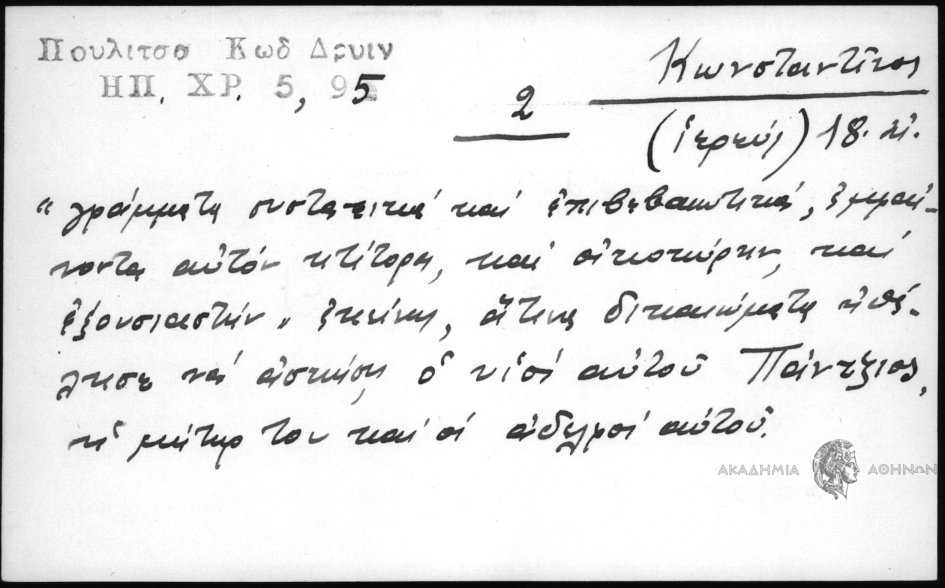 Πουλιτσα Κωδ Δρυιν
ΗΠ. ΧΡ. 5, 95
2
Κωνσταντῖνος
(ἱερεύς) 18. αἰ.
"γράμματα συστατικά καί ἐπιβεβαιωτικά, ἐμφαί-
νοντα αὐτόν κτίτορα, καί οἰκοκύρην, καί
ἐξουσιαστήν" ἐκείνης, ἅτινα δικαιώματα ἠθέ-
λησε νά ἀσκήσῃ ὁ υἱός αὐτοῦ Πάντζιος,
ἡ μήτηρ του καί οἱ ἀδελφοί αὐτοῦ.
ΑΚΑΔΗΜΙΑ ΑΘΗΝΩΝ